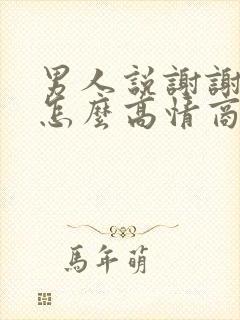 男人説謝謝
怎麼高情商
馬年萌